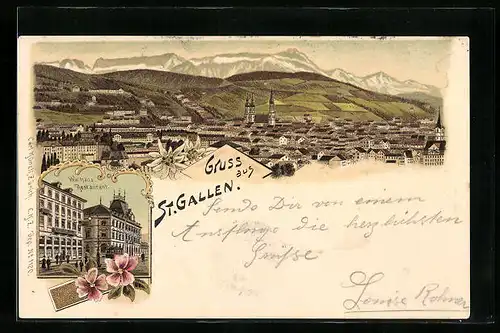 Gruss
aus
St. Gallen.
Restaurant
Sende Dir von einem
Ausfluge die herzlichsten
Grüsse
Louise Rohner